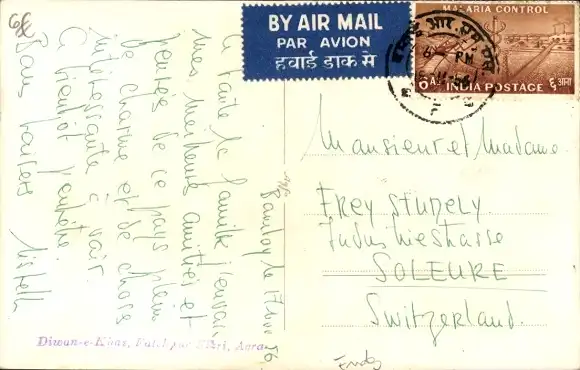 BY AIR MAIL
PAR AVION
हवाई डाक से
MALARIA CONTROL
6 As. INDIA POSTAGE ६ आना
Bombay le 17 nov 56
A toute la famille j'envoie
mes meilleures amitiés et
pensées de ce pays plein
de charme et de choses
intéressantes à voir.
A bientôt j'espère.
Bons baisers
Monsieur et Madame
FREY STUDELY
Industriestrasse
SOLEURE
Switzerland.
Diwan-e-Khas, Fatehpur Sikri, Agra